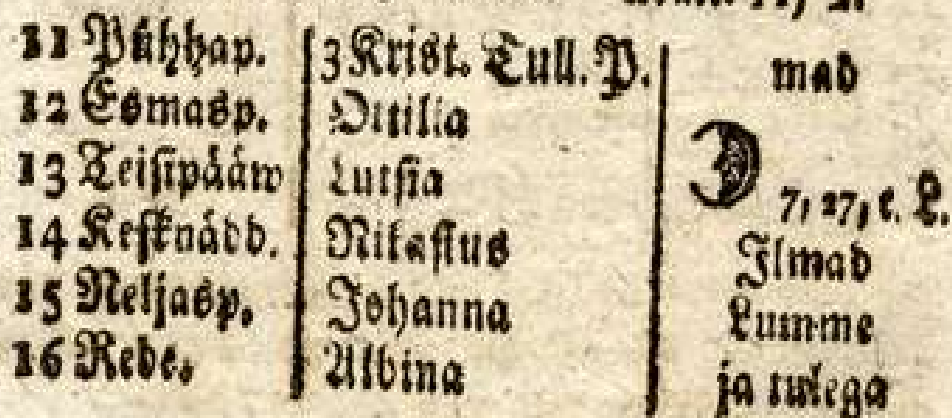 11 Pühhap. 3 Krist. Tull. P. mad
12 Esmasp. Ottilia
13 Teisipääw Lutsia 7, 27, e. L.
14 Kesknädd. Nikasius Ilmad
15 Neljasp. Johanna Lumme
16 Rede. Albina ja tulega